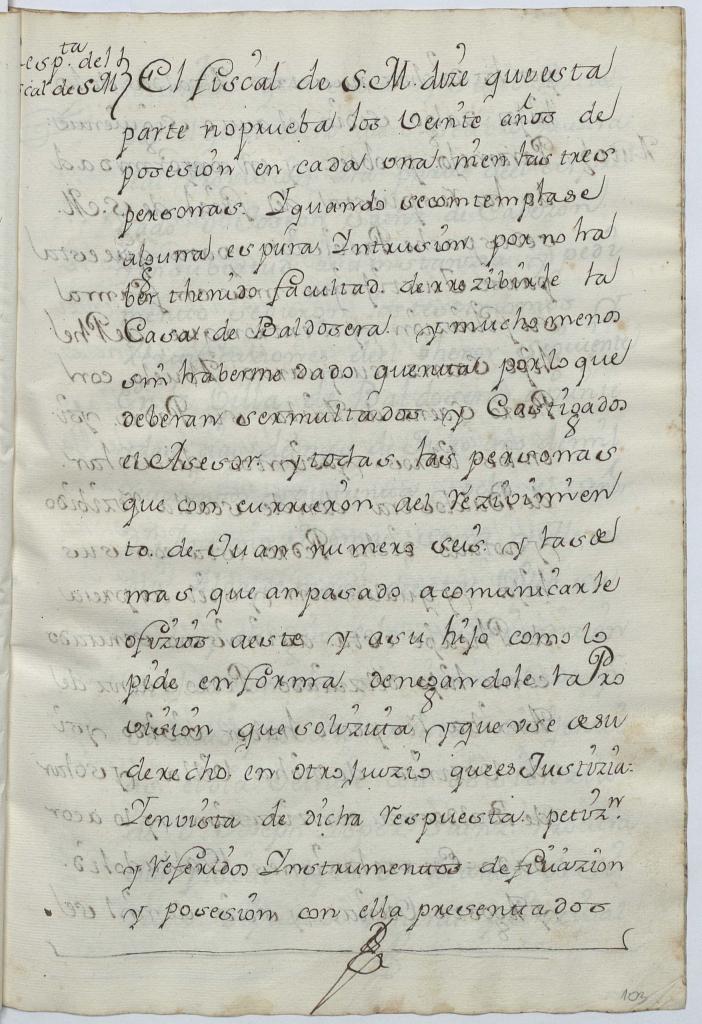 respta. del fis
cal de S.M.
El fiscal de S.M. dize que esta
parte no prueba los veinte años de
posesion en cada una, ni en las tres
personas. Y quando se comtemplase
alguna es pura Intrusion por no ha
ber thenido facultad de rrezibirle la
Casa de Baldosera y mucho menos
sin haberme dado quenta por lo que
deberan ser multados y Castigados
el Asesor y todas las personas
que concurrieron ael rezivimien
to de Juan numero seis y las de
mas que an pasado a comunicarle
ofizios a este y a su hijo como lo
pide en forma denegandole la Pro
vision que solizita y que use de su
derecho en otro Juizio que es Justizia:
Y en vista de dicha respuesta petizn.
y referidos Instrumentos de filiazion
y posesion con ella presentados
103